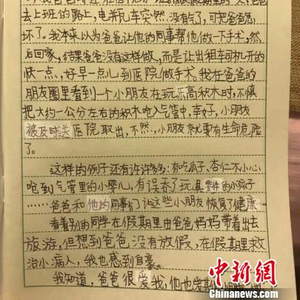 去上班的路上,电瓶车突然没有了,可把爸爸急
坏了。我本来以为爸爸让他的同事帮他做一下手术,然
后回家,结果爸爸没有这样做,而是让出租车司机开的
快一点,好早一点儿到医院做手术。我在爸爸的
朋友圈里看到一个小朋友在玩乐高积木时,不慎
把大约一公分左右的积木呛入气管中,幸好,小朋友
被及时送医院取出,不然,小朋友就要有生命危险
了。
这样的例子还有许许多多:有吃瓜子、杏仁不小心
呛到气管里的小婴儿,有误吞了玩具的小孩子
……爸爸和他的同事们让这些小朋友恢复了健康
看着别的同学在假期里由爸爸妈妈带着出去
旅游,但想到爸爸,没有放假,在假期里救
治小病人,我也感到自豪。
我知道,爸爸很爱我,他也
中新网